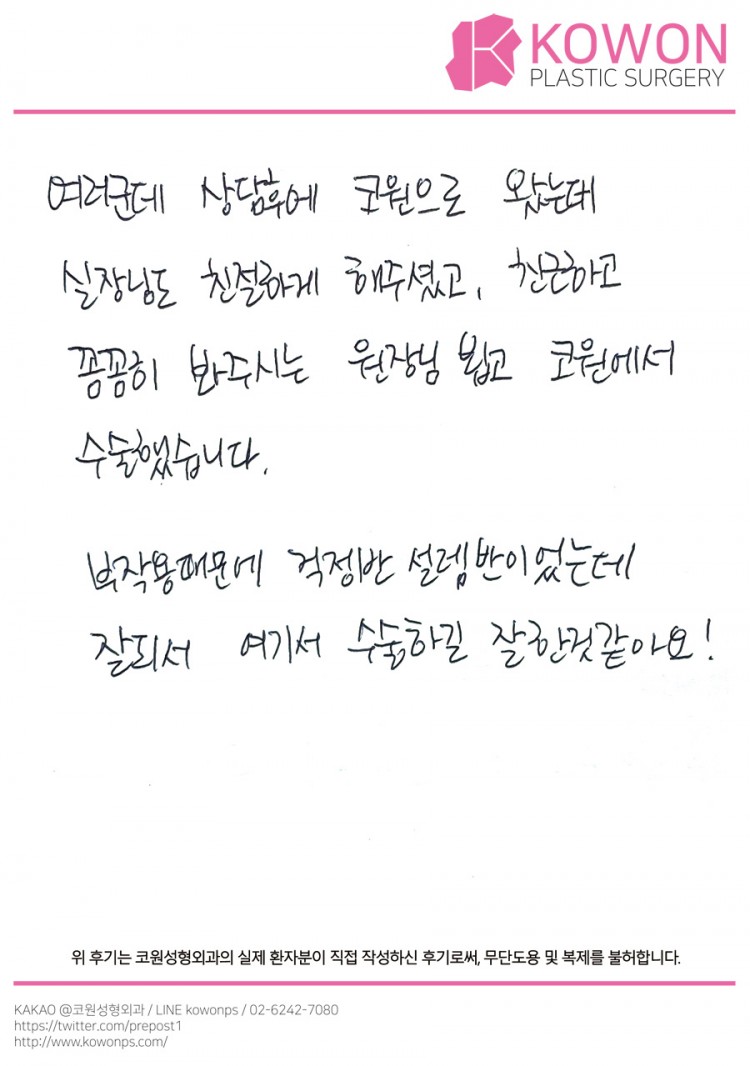 KOWON
PLASTIC SURGERY
여러군데 상담후에 코원으로 왔는데
실장님도 친절하게 해주셨고, 친근하고
꼼꼼히 봐주시는 원장님 뵙고 코원에서
수술했습니다.
부작용때문에 걱정반 설렘반이었는데
잘되서 여기서 수술하길 잘한것같아요!
위 후기는 코원성형외과의 실제 환자분이 직접 작성하신 후기로써, 무단도용 및 복제를 불허합니다.
KAKAO @코원성형외과 / LINE kowonps / 02-6242-7080
https://twitter.com/prepost1
http://www.kowonps.com/